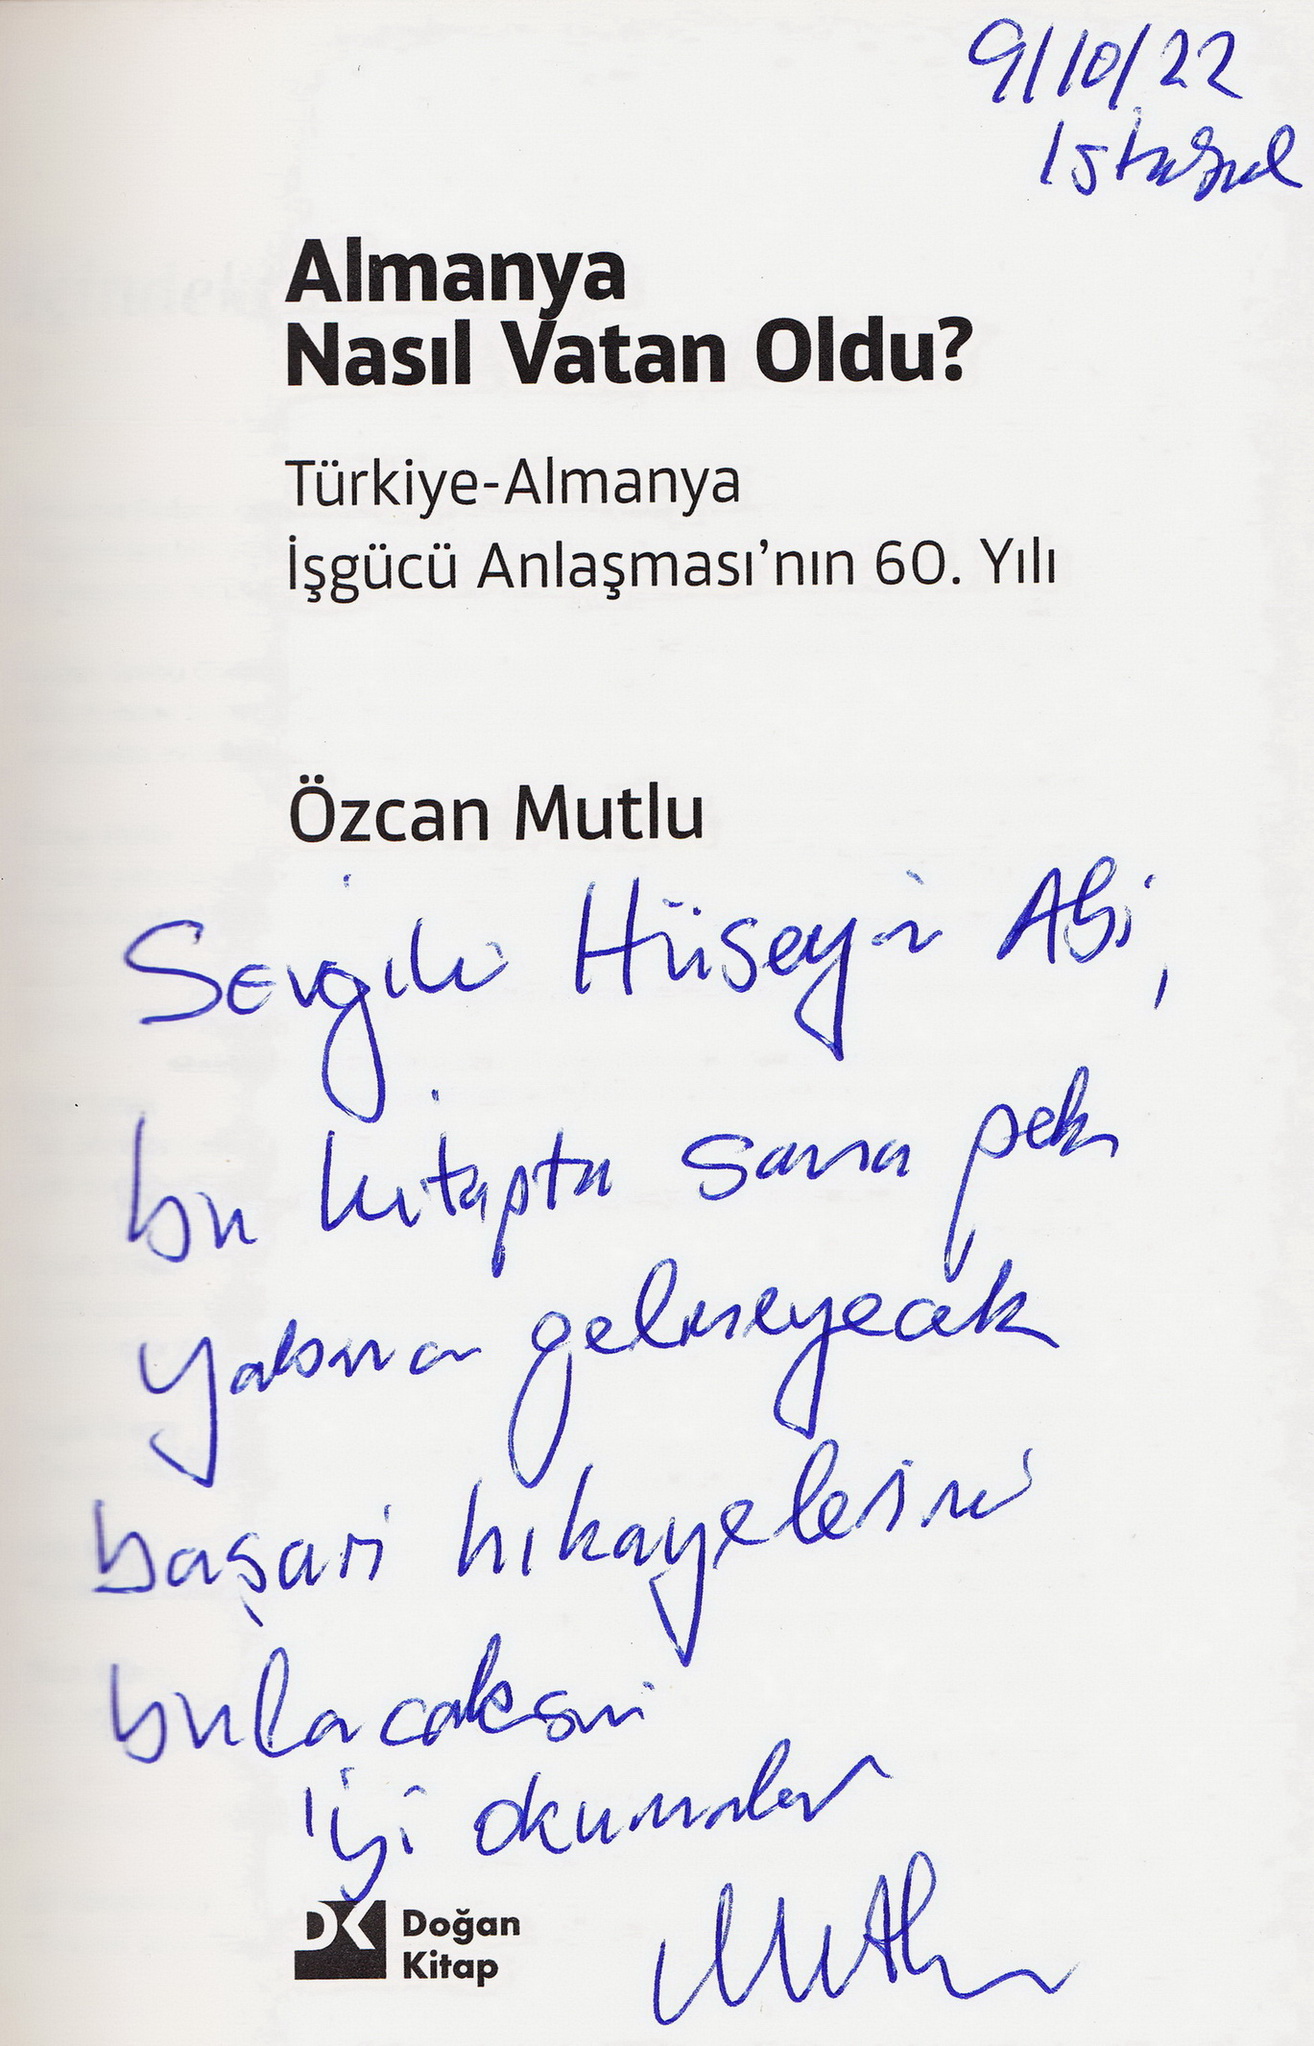 9/10/22
İstanbul
Almanya
Nasıl Vatan Oldu?
Türkiye-Almanya
İşgücü Anlaşması'nın 60. Yılı
Özcan Mutlu
Sevgili Hüseyin Abi,
bu kitapta sana pek
yabancı gelmeyecek
başarı hikayelerini
bulacaksın
İyi okumalar
Mutlu
DK Doğan
Kitap